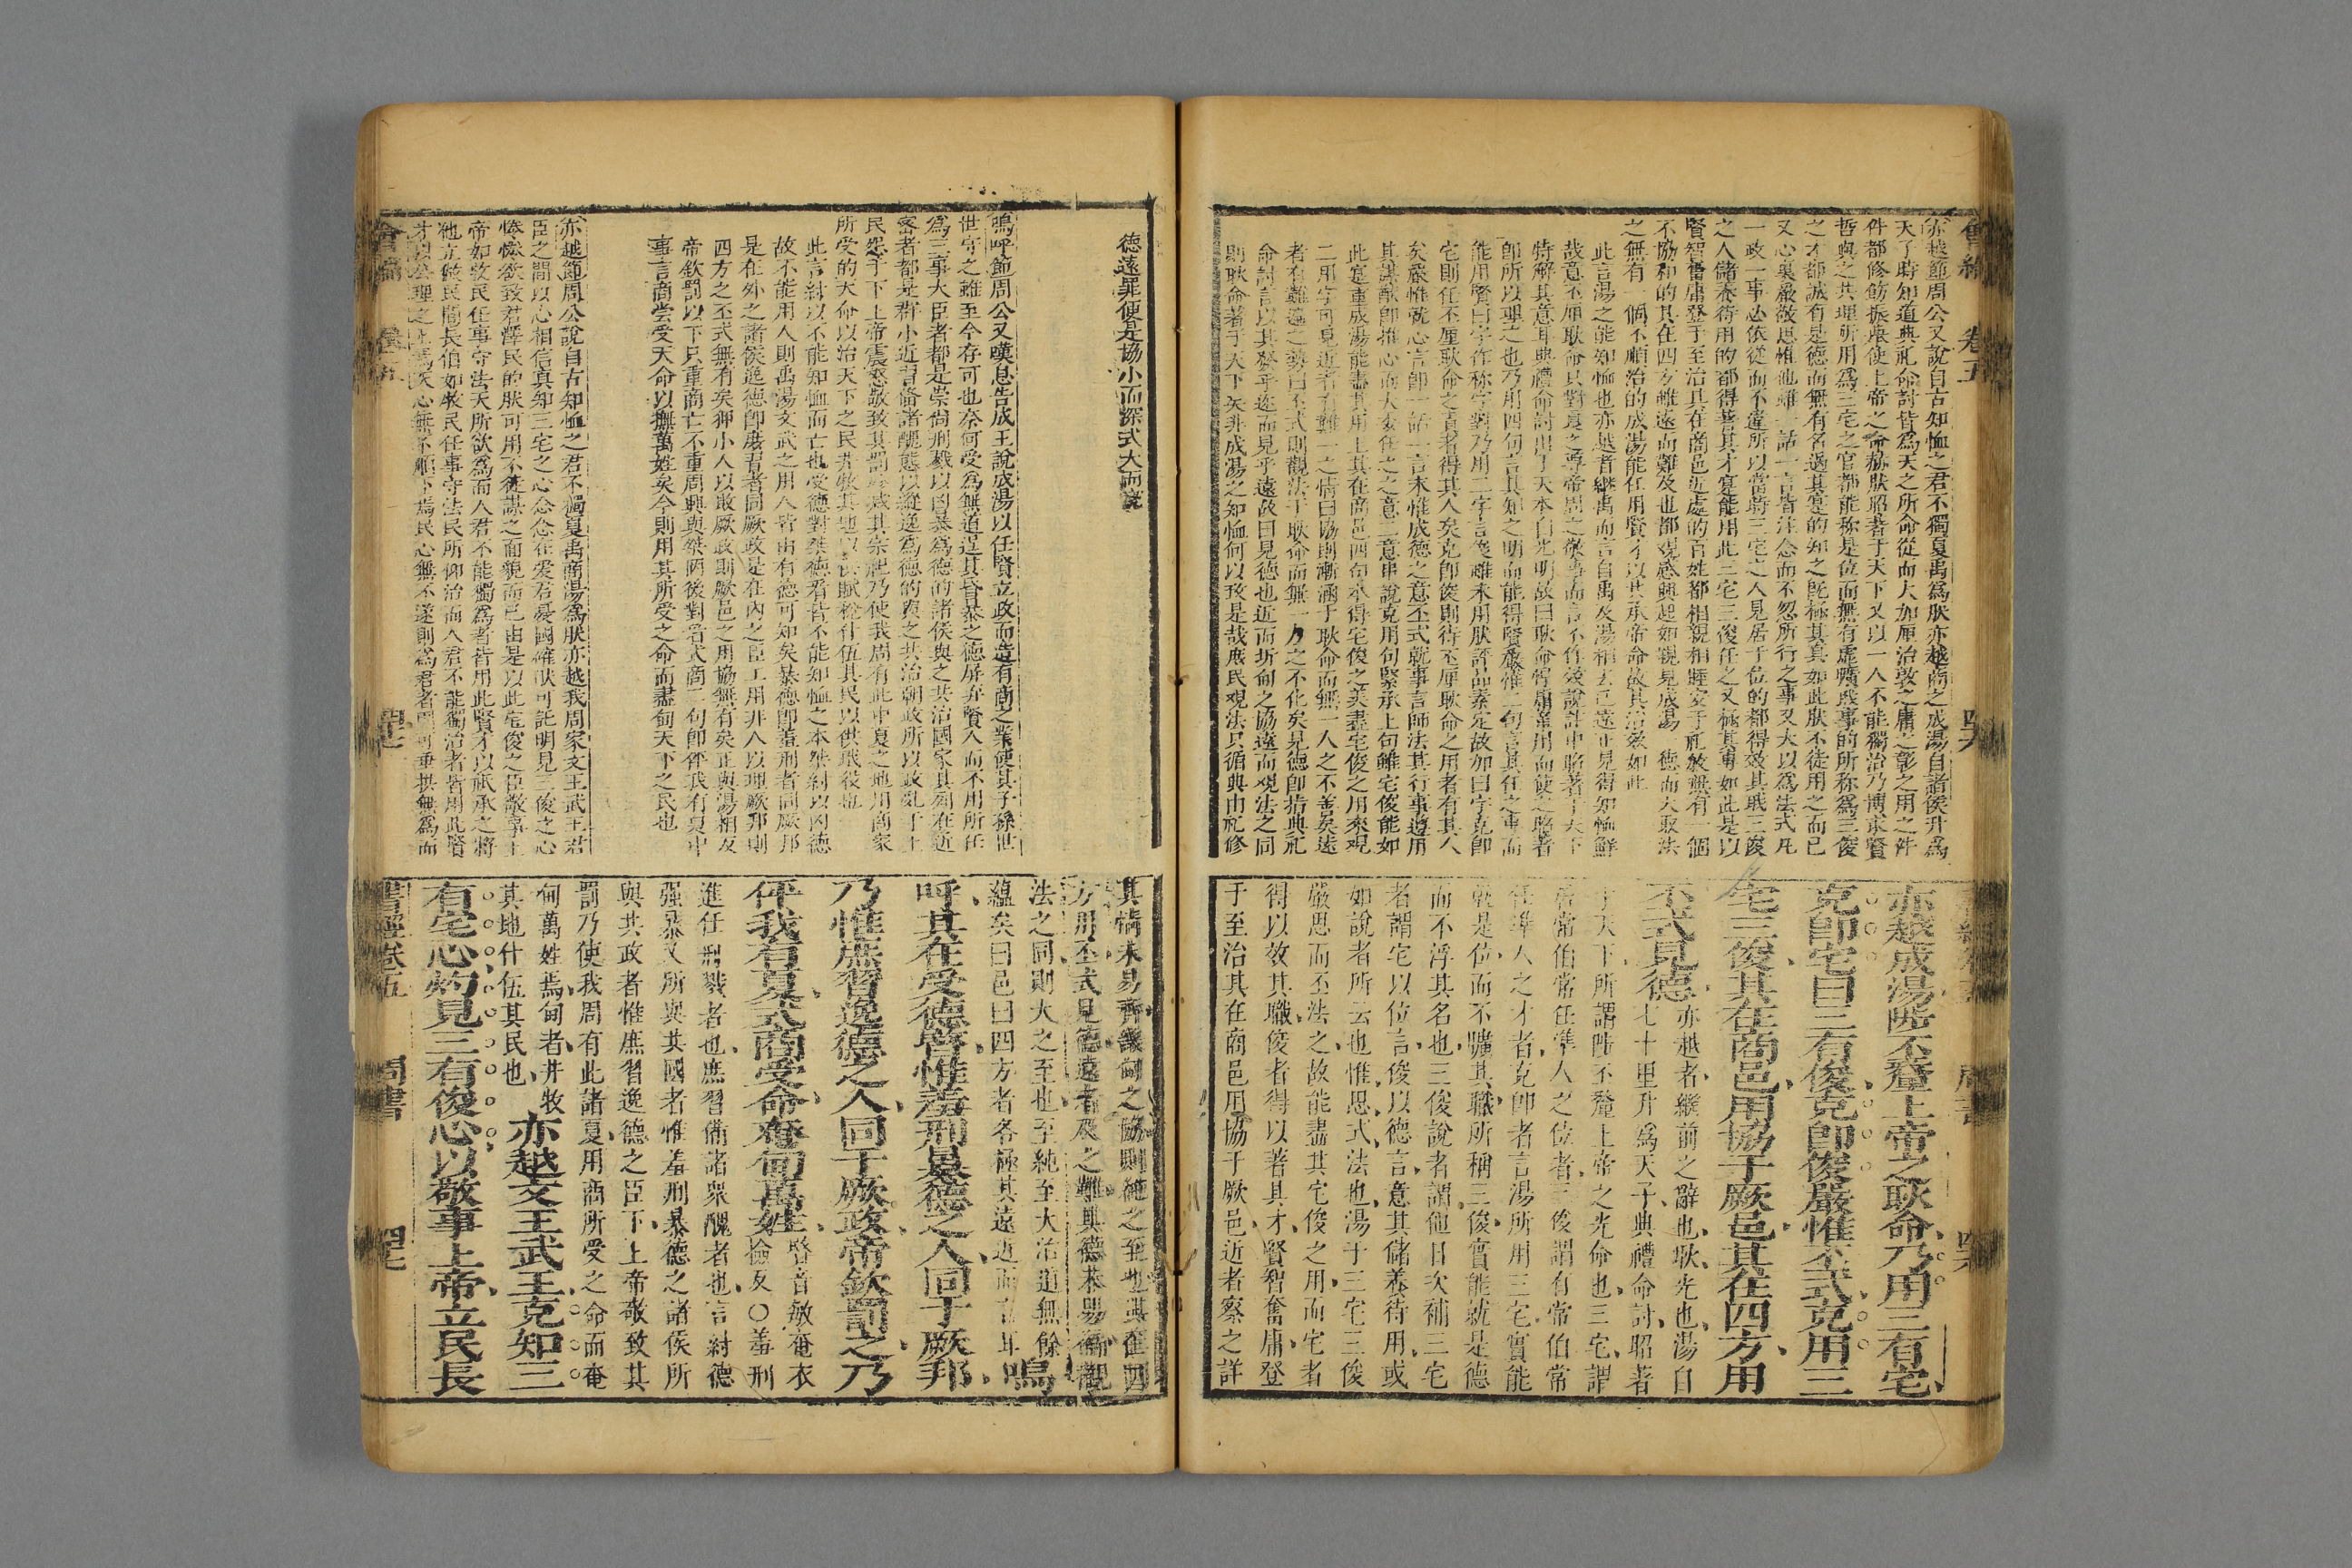 會編 卷五 四六
亦越節周公又說自古知恤之君不獨夏禹爲肰亦越商之成湯自諸侯升爲
天子時知道典祀命討皆爲天之所命從而大加厘治敦之庸之彰之用之件
件都修飭振舉使上帝之命赫肰昭著于天下又以一人不能獨治乃博求賢
哲與之共理所用爲三宅之官都能称是位而無有虛曠戝事的所称爲三俊
之才都誠有是德而無有名過其寔的知之旣極其真如此肰不徒用之而已
又心裏嚴敬思惟他雖一話一言皆注念而不忽所行之事又大以爲法式凡
一政一事必依從而不違所以當時三宅之人見居于位的都得效其職三俊
之人儲養待用的都得著其才寔能用此三宅三俊任之又極其專如此是以
賢智奮庸登于至治其在商邑近處的百姓都相親相睦安于祀敎無有一個
不協和的其在四方雖遠而難及也都覌感興起如親見成湯一德而大取法
之無有一個不順治的成湯能任用賢才以其承帝命故其治效如此
此言湯之能知恤也亦越者継禹而言自禹及湯相去已遠正見得知恤鮮
哉意丕厘耿命只對夏之尊帝周之敬事而言不作效說註中昭著于天下
特解其意耳典禮命討出于天本自光明故曰耿命
卽所以理之也乃用四句言其知之明而能得賢嚴惟二句言其任之專而
能用賢曰字作称字對乃用二字言俊雖未用肰評品素定故加曰字克卽
宅則任丕厘耿命之責者得其人矣克卽俊則待丕厘耿命之用者有其人
矣嚴惟就心言卽一話一言末惟成德之意丕式就事言師法其行事遵用
其謀猷卽推心而大委任之之意二意串說克用句緊承上句雖宅俊能如
此寔重成湯能盡其用上其在商邑四句本得宅俊之美盡宅俊之用來覌
二用字可見近者有難一之情曰協則漸涵于耿命而無一人之不善矣遠
者有難遍之勢曰丕式則觀法于耿命而無一方之不化矣見德卽指典祀
命討言以其發乎迩而見乎遠故曰見德也近而圻甸之協遠而覌法之同
則耿命著于天下矣非成湯之知恤何以致是哉蔗民覌法只循典由祀修
亦越成湯陟丕釐上帝之耿命乃用三有宅
克卽宅曰三有俊克卽俊嚴惟丕式克用三
宅三俊其在商邑用協于厥邑其在四方用
丕式見德亦越者繼前之辭也耿光也湯自
七十里升爲天子典禮命討昭著
于天下所謂陟丕釐上帝之光命也三宅謂
居常伯常任準人之位者三俊謂有常伯常
任準人之才者克卽者言湯所用三宅實能
就是位而不曠其職所稱三俊實能就是德
而不浮其名也三俊說者謂他日次補三宅
者謂宅以位言俊以德言意其儲養待用或
如說者所云也惟思式法也湯于三宅三俊
嚴思而丕法之故能盡其宅俊之用而宅者
得以效其職俊者得以著其才賢智奮庸登
于至治其在商邑用協于厥邑近者察之詳
德遠罪便是協小而深式大而寬
嗚呼節周公又嘆息告成王說成湯以任賢立政而造有商之業使其子孫世
世守之雖至今存可也奈何受爲無道逞其昏暴之德屏弃賢人而不用所任
爲三事大臣者都是崇尙刑戮以凶暴爲德的諸侯與之共治國家其列在近
密者都是群小近習備諸醜態以縱逸爲德的與之共治朝政所以政亂于上
民怨于下上帝震怒敬致其罰殄滅其宗祀乃使我周有此中夏之地用商家
所受的天命以治天下之民井牧其地以供賦稅什伍其民以供戝役也
此言紂以不能知恤而亡也受德對桀德看皆不能知恤之本桀紂以凶德
故不能用人則禹湯文武之用人皆由有德可知矣暴德卽羞刑者同厥邦
是在外之諸侯逸德卽庶習者同厥政是在內之臣工用非人以理厥邦則
四方之丕式無有矣狎小人以敢厥政則厥邑之用協無有矣正與湯相反
帝欽罰以下只重商亡不重周興與桀陋後對看式商二句卽伻我有夏中
事言商嘗受天命以撫萬姓矣今則用其所受之命而盡甸天下之民也
亦越節周公說自古知恤之君不獨夏禹商湯爲肰亦越我周家文王武王君
臣之間以心相信真知三宅之心念念在爰君憂國確肰可託明見三俊之心
惓惓欲致君澤民的肰可用不徒謀之面貌而已由是以此宅俊之臣敬事上
帝如敎民任事守法天所欲爲而人君不能獨爲者皆用此賢才以祇承之將
他立做民間長伯如敎民任事守法民所仰治而人君不能獨治者皆用此賢
其情未易齊畿甸之協則純之至也其在四
方用丕式見德遠者及之難其德未易徧觀
法之同則大之至也至純至大治道無餘
蘊矣曰邑曰四方者各極其遠近而言耳嗚
呼其在受德暋惟羞刑暴德之人同于厥邦
乃惟庶習逸德之人同于厥政帝欽罰之乃
伻我有夏式商受命奄甸萬姓暋音敏奄衣
檢反〇羞刑
進任刑戮者也庶習備諸眾醜者也言紂德
强暴又所與共國者惟羞刑暴德之諸侯所
與共政者惟庶習逸德之臣下上帝敬致其
罰乃使我周有此諸夏用商所受之命而奄
甸萬姓焉甸者井牧
其地什伍其民也亦越文王武王克知三
有宅心灼見三有俊心以敬事上帝立民長
書經卷五 周書 四七